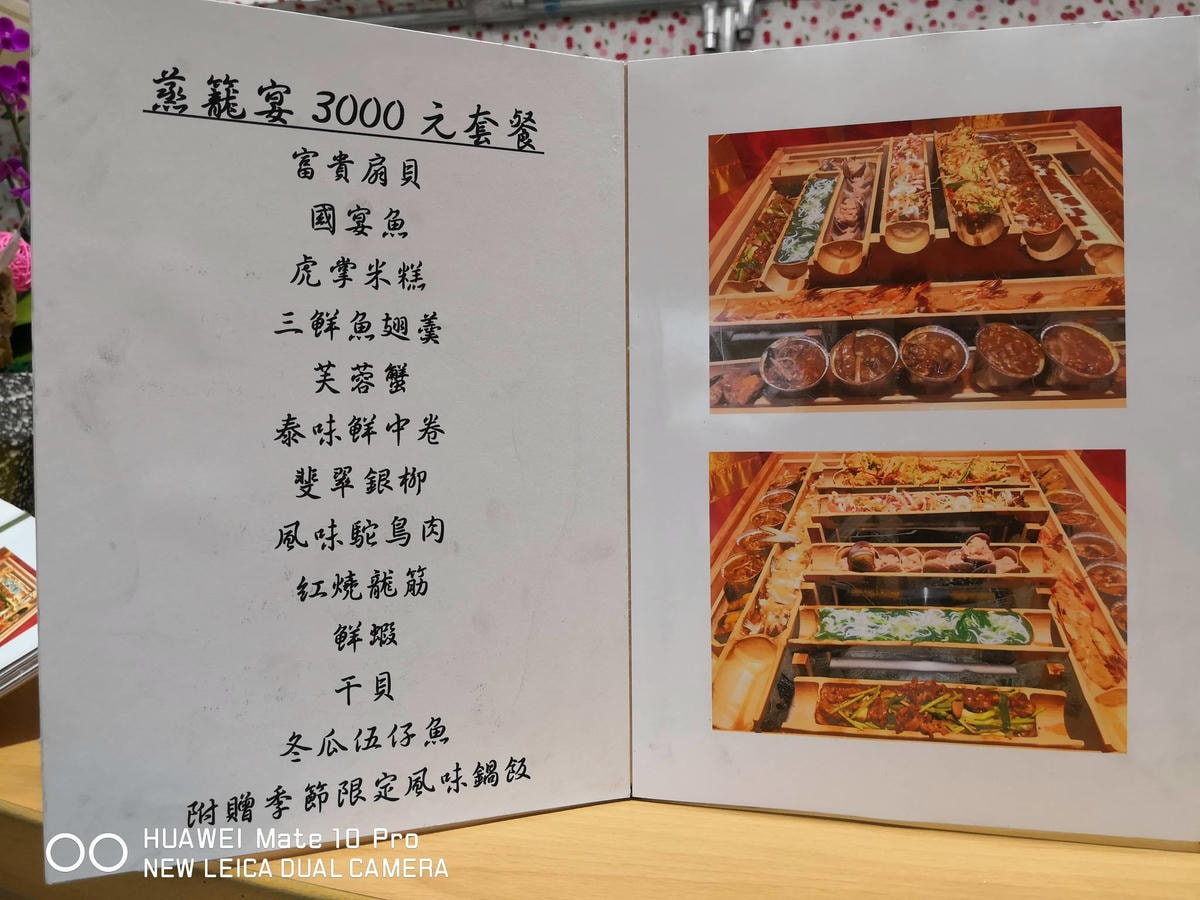 蒸籠宴 3000 元套餐
富貴扇貝
國宴魚
虎掌米糕
三鮮魚翅羹
芙蓉蟹
泰味鮮中卷
斐翠銀柳
風味駝鳥肉
紅燒龍筋
鮮蝦
干貝
冬瓜伍仔魚
附贈季節限定風味鍋飯
HUAWEI Mate 10 Pro
NEW LEICA DUAL CAMERA